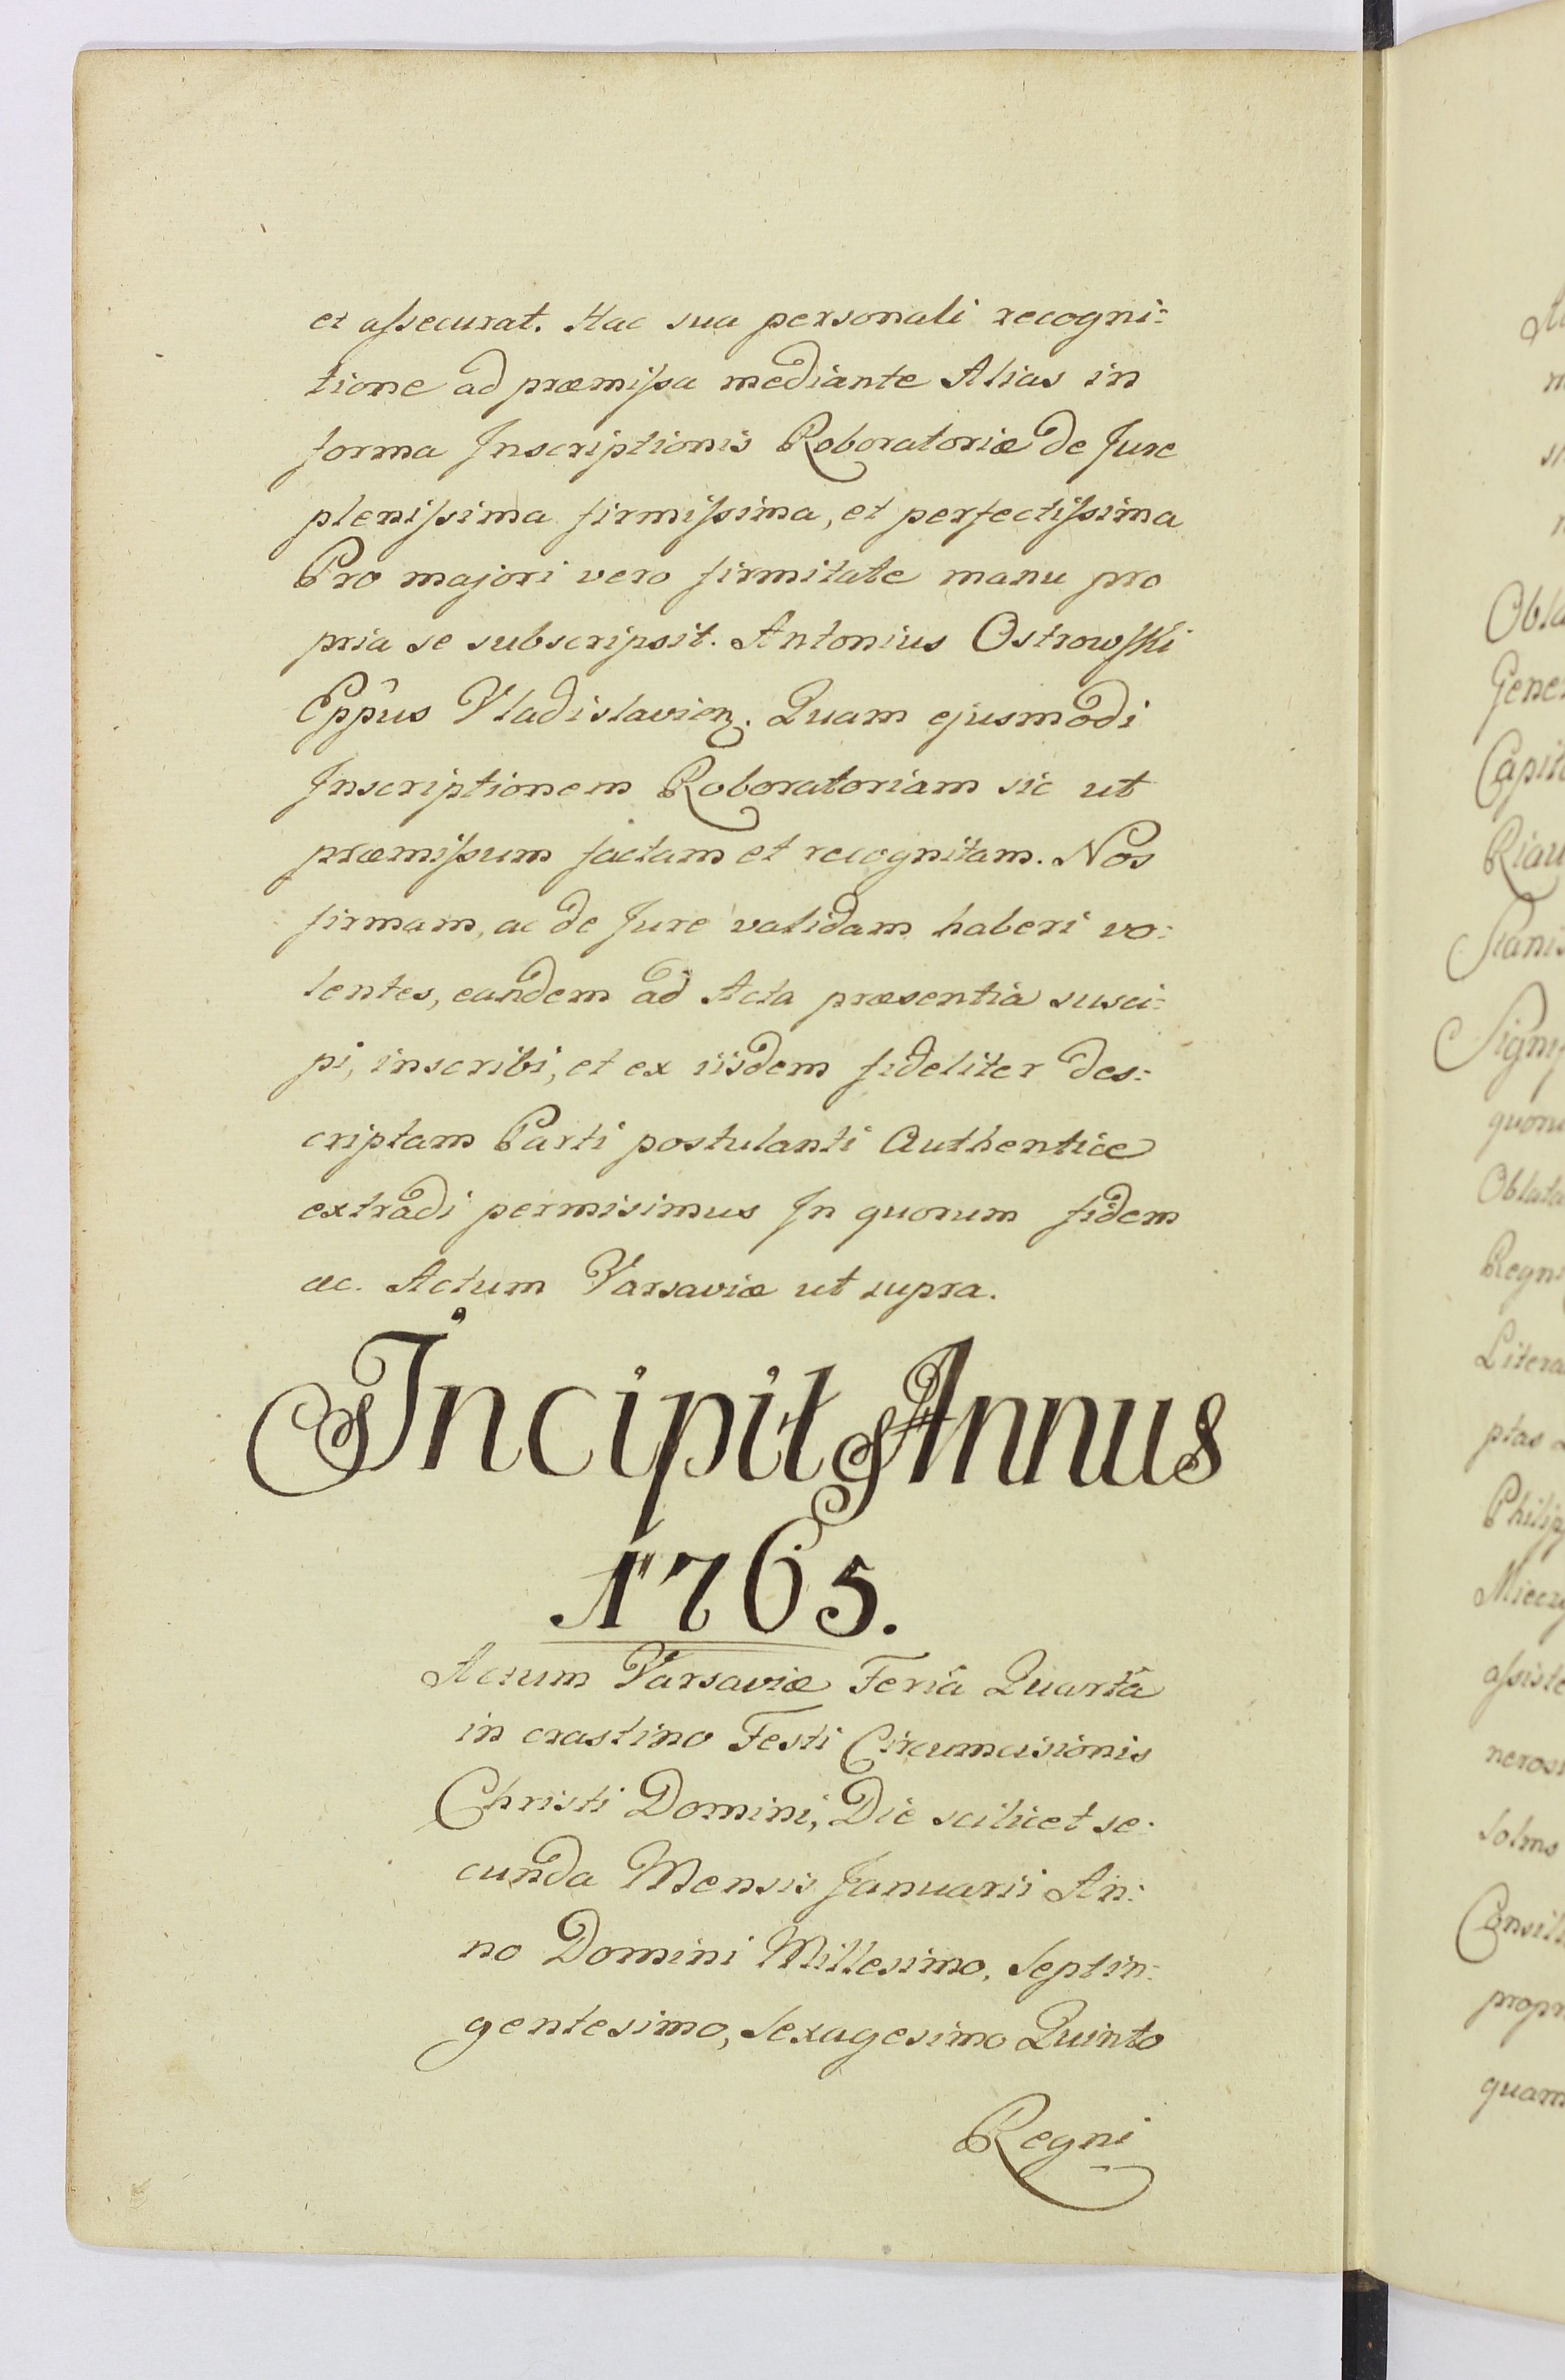 et assecurat. Hac sua personali recogni:
tione ad præmissa mediante Alias in
forma Inscriptionis Roboratoriæ de Jure
plenissima firmissima, et perfectissima
Pro majori vero firmitate manu pro
pria se subscripsit. Antonius Ostrowski
Eppûs Vladislavien. Quam ejusmodi
Inscriptionem Roboratoriam sic ut
præmissum factam et recognitam. Nos
firmam, ac de Jure validam haberi vo:
lentes, eandem ad Acta præsentia susci:
pi, inscribi, et ex iisdem fideliter des:
criptam Parti postulanti Authentice
extradi permisimus In quorum fidem
ac. Actum Varsaviæ ut supra.
Incipit Annus
1765.
Actum Varsaviæ Feriâ Quartâ
in crastino Festi Circumcisionis
Christi Domini, Die scilicet se:
cunda Mensis Januarii An:
no Domini Millesimo, Septin:
gentesimo, Sexagesimo Quinto
Regni
Obla
Gene
Capit
Riau
Stanis
Signi
quoru
Oblata
Regni
Litera
ptas
Philip
Miecz
assiste
nerosi
solms
Consili
propr
quam